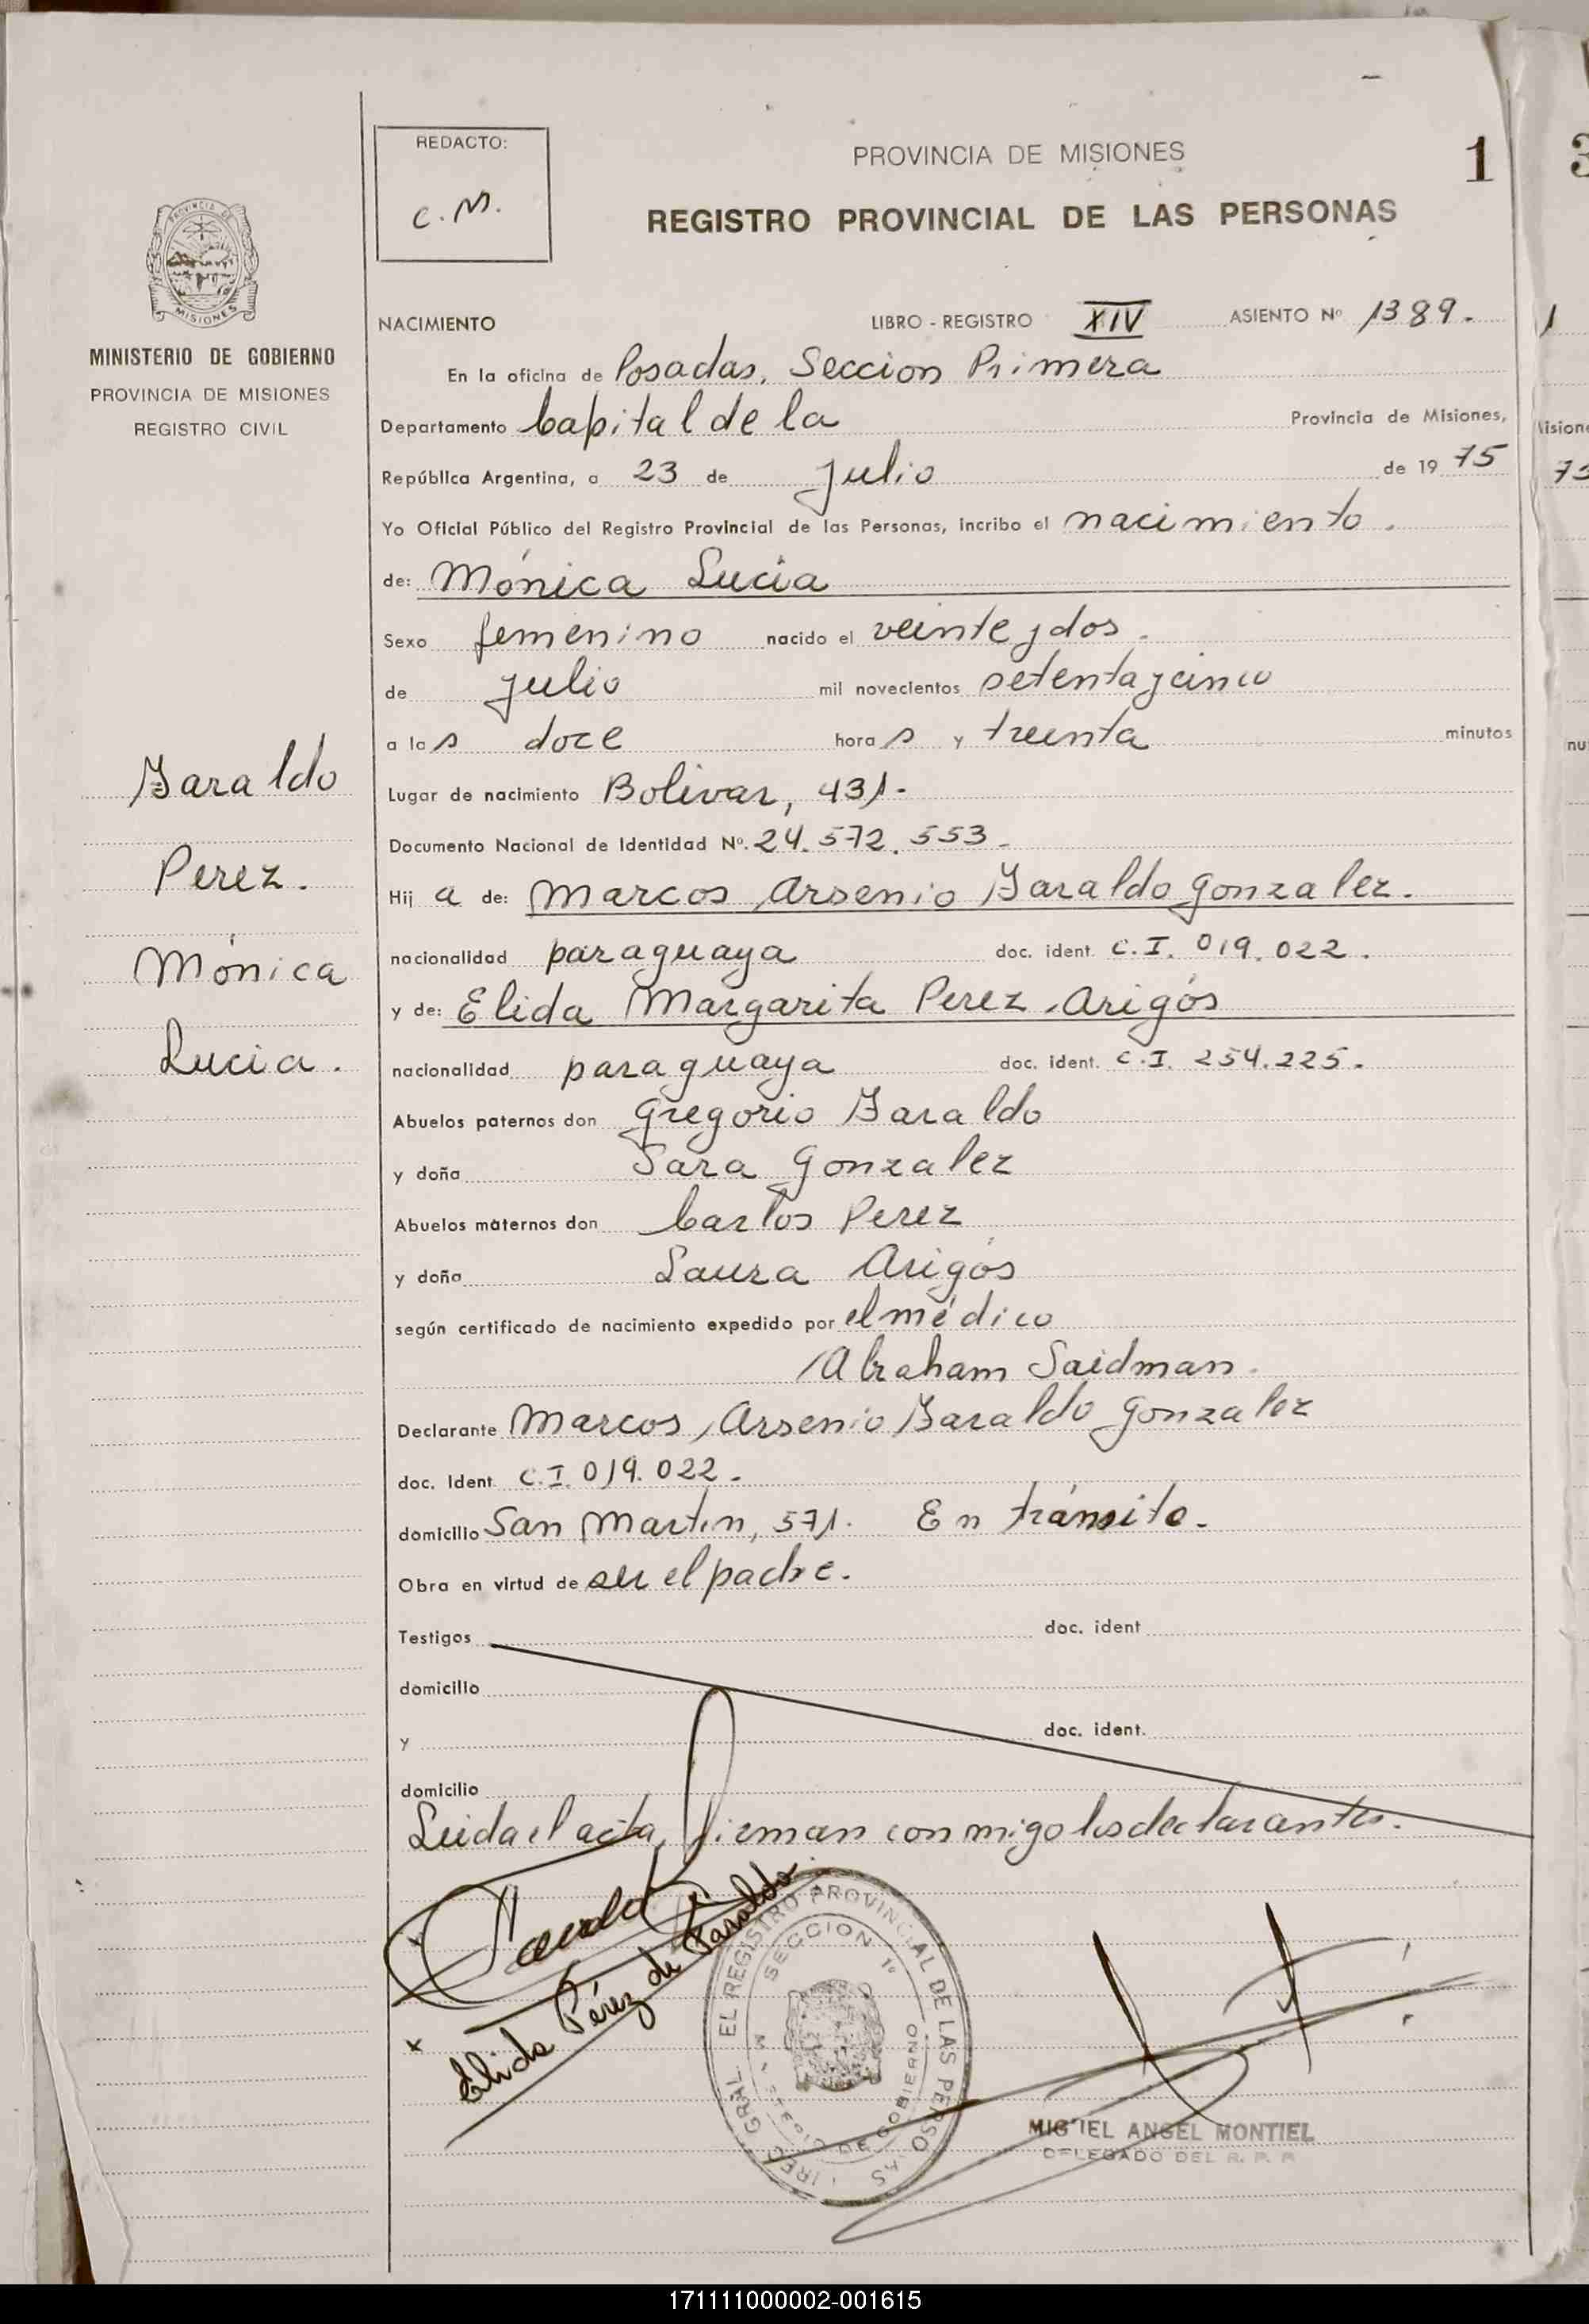 1
REDACTO:
C. M.
PROVINCIA DE MISIONES
REGISTRO PROVINCIAL DE LAS PERSONAS
PROVINCIA DE
MISIONES
MINISTERIO DE GOBIERNO
PROVINCIA DE MISIONES
REGISTRO CIVIL
Faraldo
Perez.
Mónica
Lucia.
NACIMIENTO LIBRO - REGISTRO XIV ASIENTO Nº 1389.
En la oficina de Posadas, Seccion Primera
Departamento Capital de la Provincia de Misiones,
República Argentina, a 23 de Julio de 19 75
Yo Oficial Público del Registro Provincial de las Personas, incribo el nacimiento.
de: Mónica Lucia
Sexo femenino nacido el veinte y dos.
de Julio mil novecientos setenta y cinco
a las doce horas y treinta minutos
Lugar de nacimiento Bolivar, 431.
Documento Nacional de Identidad Nº. 24.572.553.
Hij a de: Marcos Arsenio Faraldo Gonzalez.
nacionalidad paraguaya doc. ident. C.I. 019.022.
y de: Elida Margarita Perez Arigós
nacionalidad paraguaya doc. ident. C.I. 254.225.
Abuelos paternos don Gregorio Faraldo
y doña Sara Gonzalez
Abuelos maternos don Carlos Perez
y doña Laura Arigós
según certificado de nacimiento expedido por el médico
Abraham Saidman.
Declarante Marcos Arsenio Faraldo Gonzalez
doc. Ident. C.I. 019.022.
domicilio San Martin, 571. En tránsito.
Obra en virtud de ser el padre.
Testigos doc. ident
domicilio
y doc. ident.
domicilio
Leida el acta, firman conmigo los declarantes.
Elida Pérez de Faraldo
EL REGISTRO PROVINCIAL DE LAS PERSO AS
SECCION 1º
DE GOBIERNO
MIG IEL ANGEL MONTIEL
DELEGADO DEL R. P. P
171111000002-001615